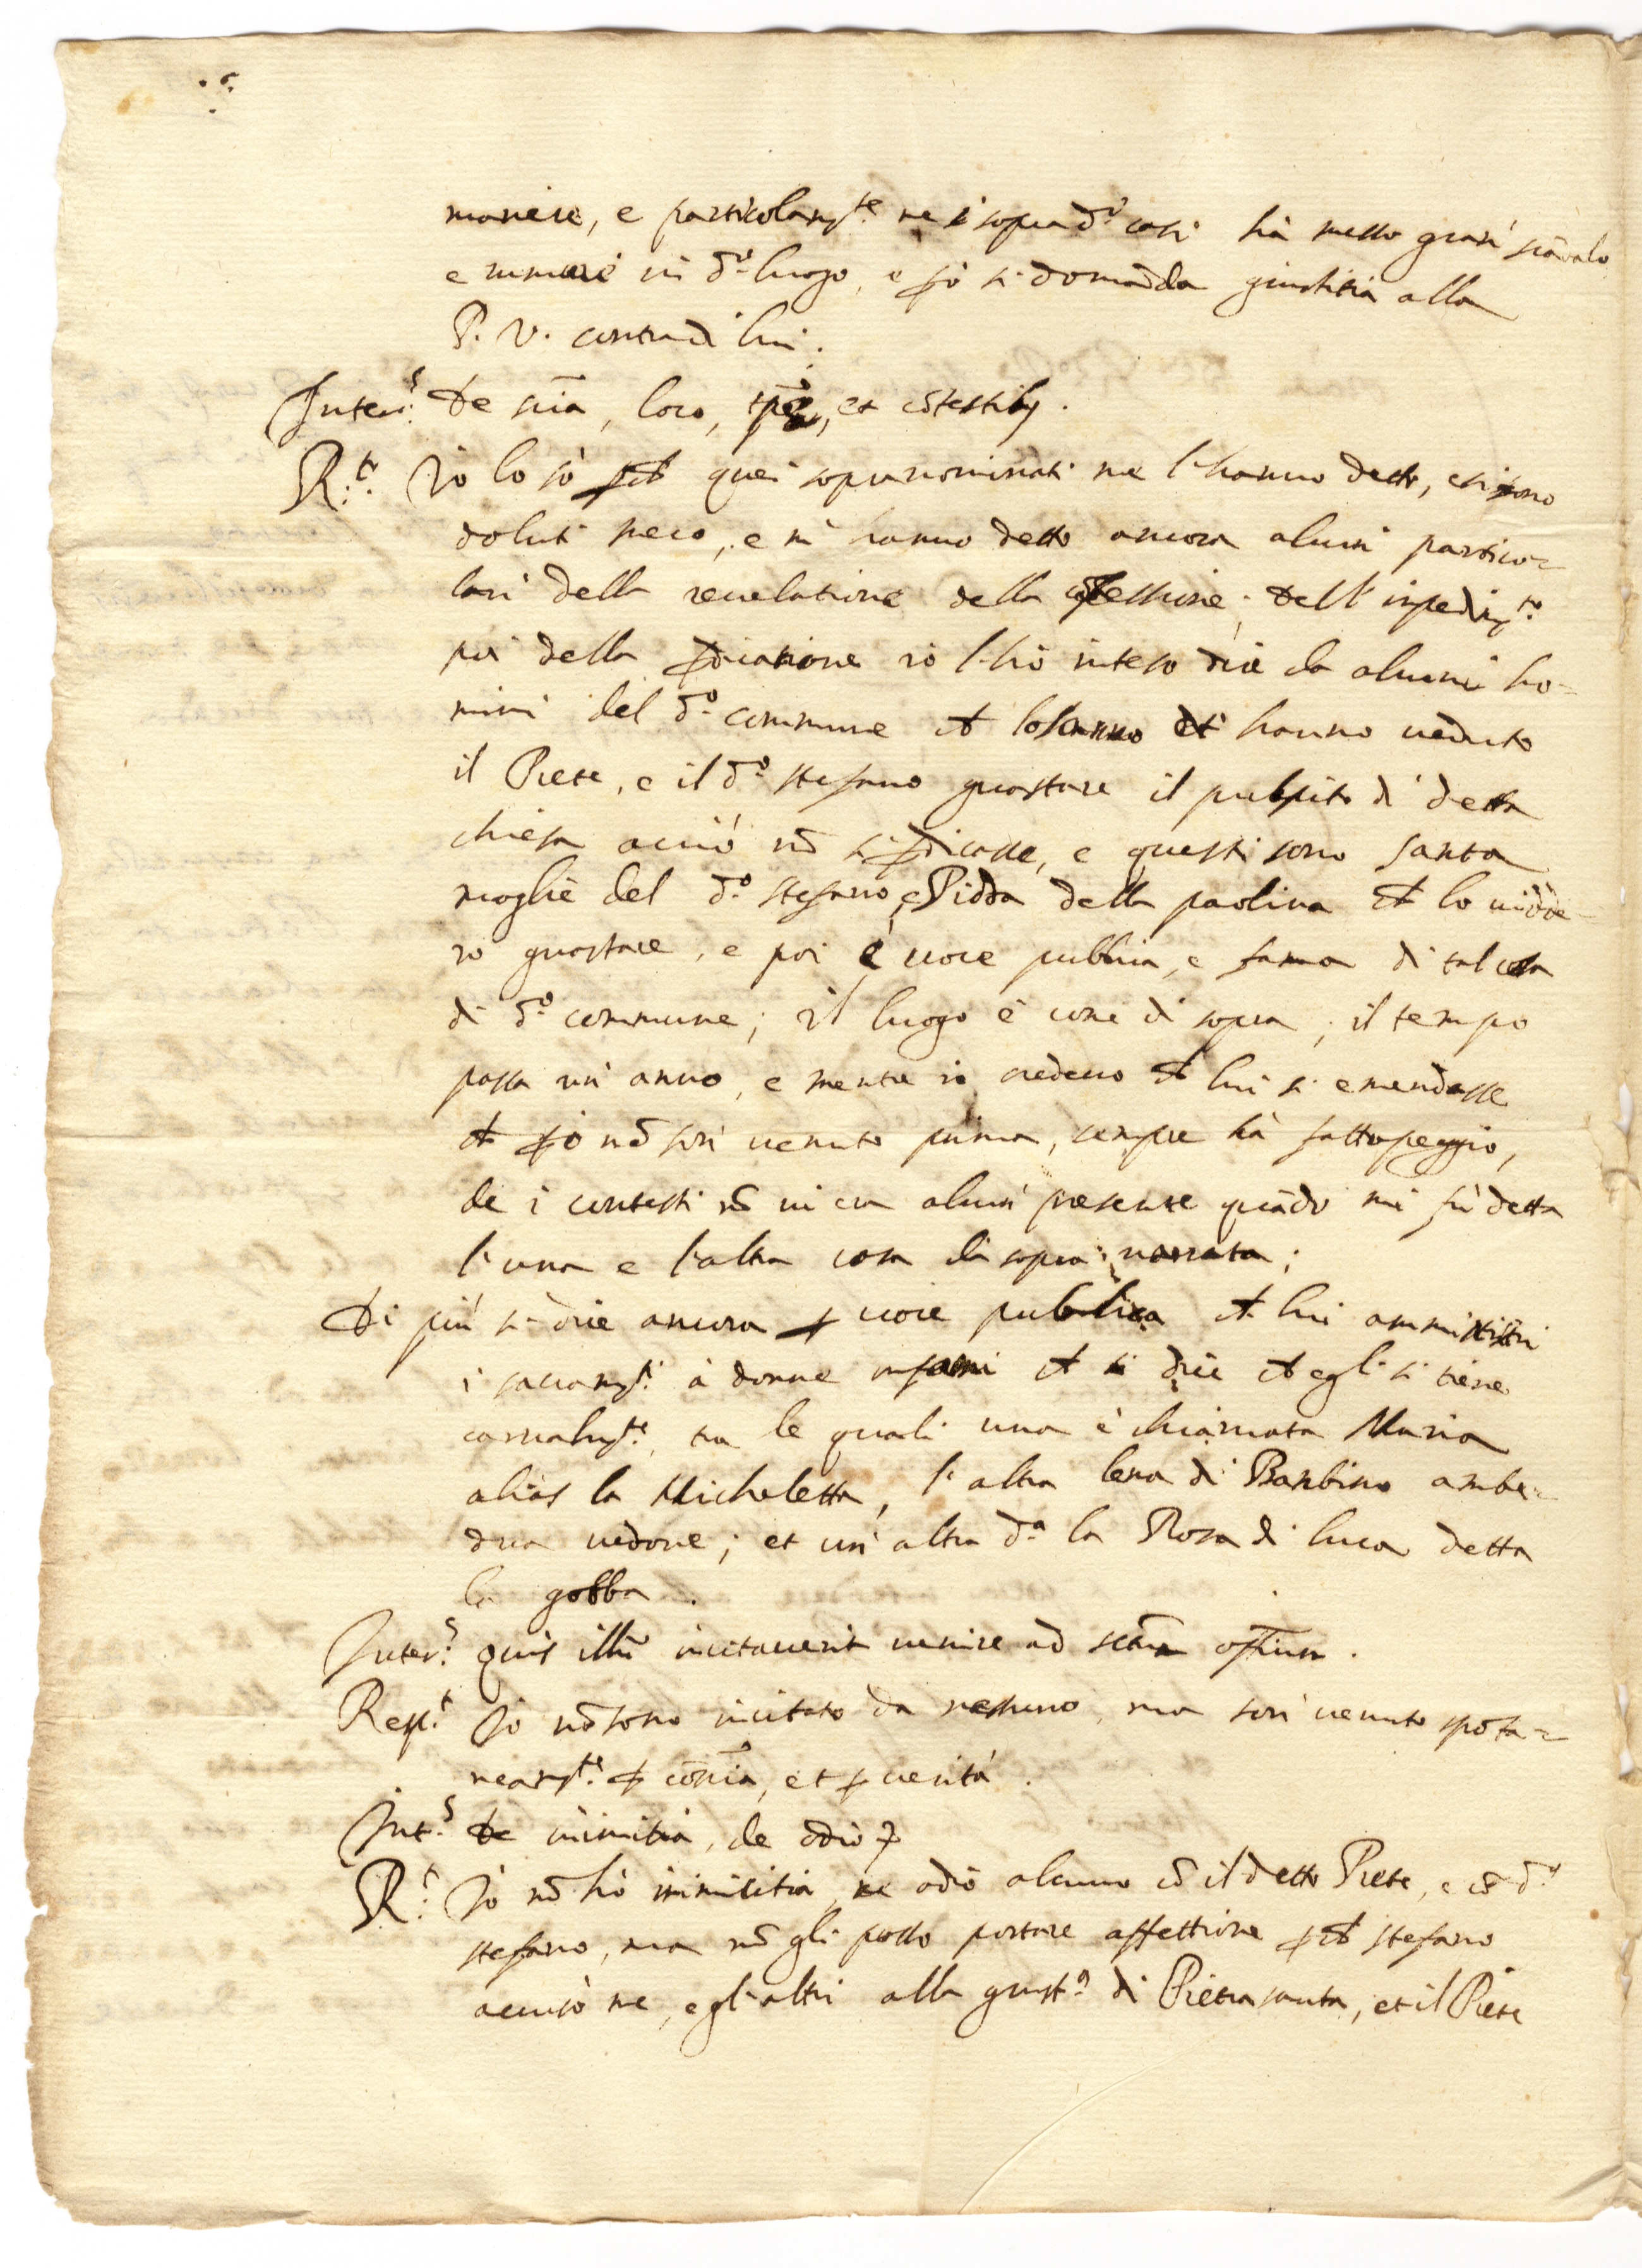 maniere, e particolarm.te ne i sopra d.i casi hà messo gran scādalo
e rumore in d.o luogo, e p̱ò si domāda giustitia alla
P. V. contra di lui.
Inter.s De sciā, loco, tpē, et cōtestibȝ.
R.t Io lo sò p̱ch̄ quei sopranominati me l'hanno detto, e si sono
doluti meco, e m'hanno detto ancora alcuni partico=
lari della reuelatione della cōfessione; dell'impedim.to
poi della p̄dicatione io l'hò inteso dire da alcuni ho=
mini del d.o commune ch̄ lo sanno ch̄ hanno ueduto
il Prete, e il d.o stefano guastare il pulpito di detta
chiesa acciò nō si p̄dicasse, e questi sono santa
moglie del d.o stefano, e Pidda della paolina ch̄ lo uidde=
ro guastare, e poi è uoce publica, e fama di tal cosa
di d.o commune; il luogo è come di sopra; il tempo
passa un'anno, e mentre io credeuo ch̄ lui si emendasse
ch̄ p̱ò nō son' uenuto prima, sempre hà fatto peggio,
de i contesti nō ui era alcun' presente quādo mi fù detta
l'una e l'altra cosa di sopra narrata;
Di più si dice ancora p̱ uoce publica ch̄ lui amministri
i sacram.ti à donne infami ch̄ si dice ch̄ egli si tiene
carnalm.te, tra le quali una è chiamata Maria
aliàs la Micheletta, l'altra lena di Banbino ambe=
dua uedoue; et un'altra d.a la Rosa di luca detta
la gobba.
Inter.s quis illū incitauerit uenire ad sctūm offium.
Resp.t Io nō sono incitato da nessuno, ma son' uenuto spōta=
neam.te p̱ cōscia, et p̱ uerità.
Int.s De inimicitia, de odio
R.t Io nō hò inimicitia, ne odio alcuno cō il detto Prete, e cō d.o
stefano, ma nō gli posso portare affettione p̱ch̄ stefano
accusò me, e gl'altri alla giust.a di Pietrasanta, et il Prete